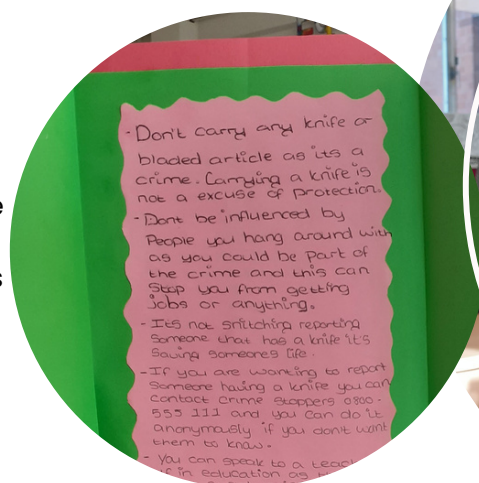 e
s
- Don't carry any knife or
bladed article as its a
crime. Carrying a knife is
not a excuse of protection.
- Dont be influenced by
People you hang around with
as you could be part of
the crime and this can
Stop you from getting
jobs or anything.
- Its not snitching reporting
Someone that has a knife it's
Saving someones life.
- If you are wanting to report
Someone having a knife you can
contact Crime Stoppers 0800-
555 111 and you can do it
anonymously if you don't want
them to know.
- You can speak to a teac
if in education as